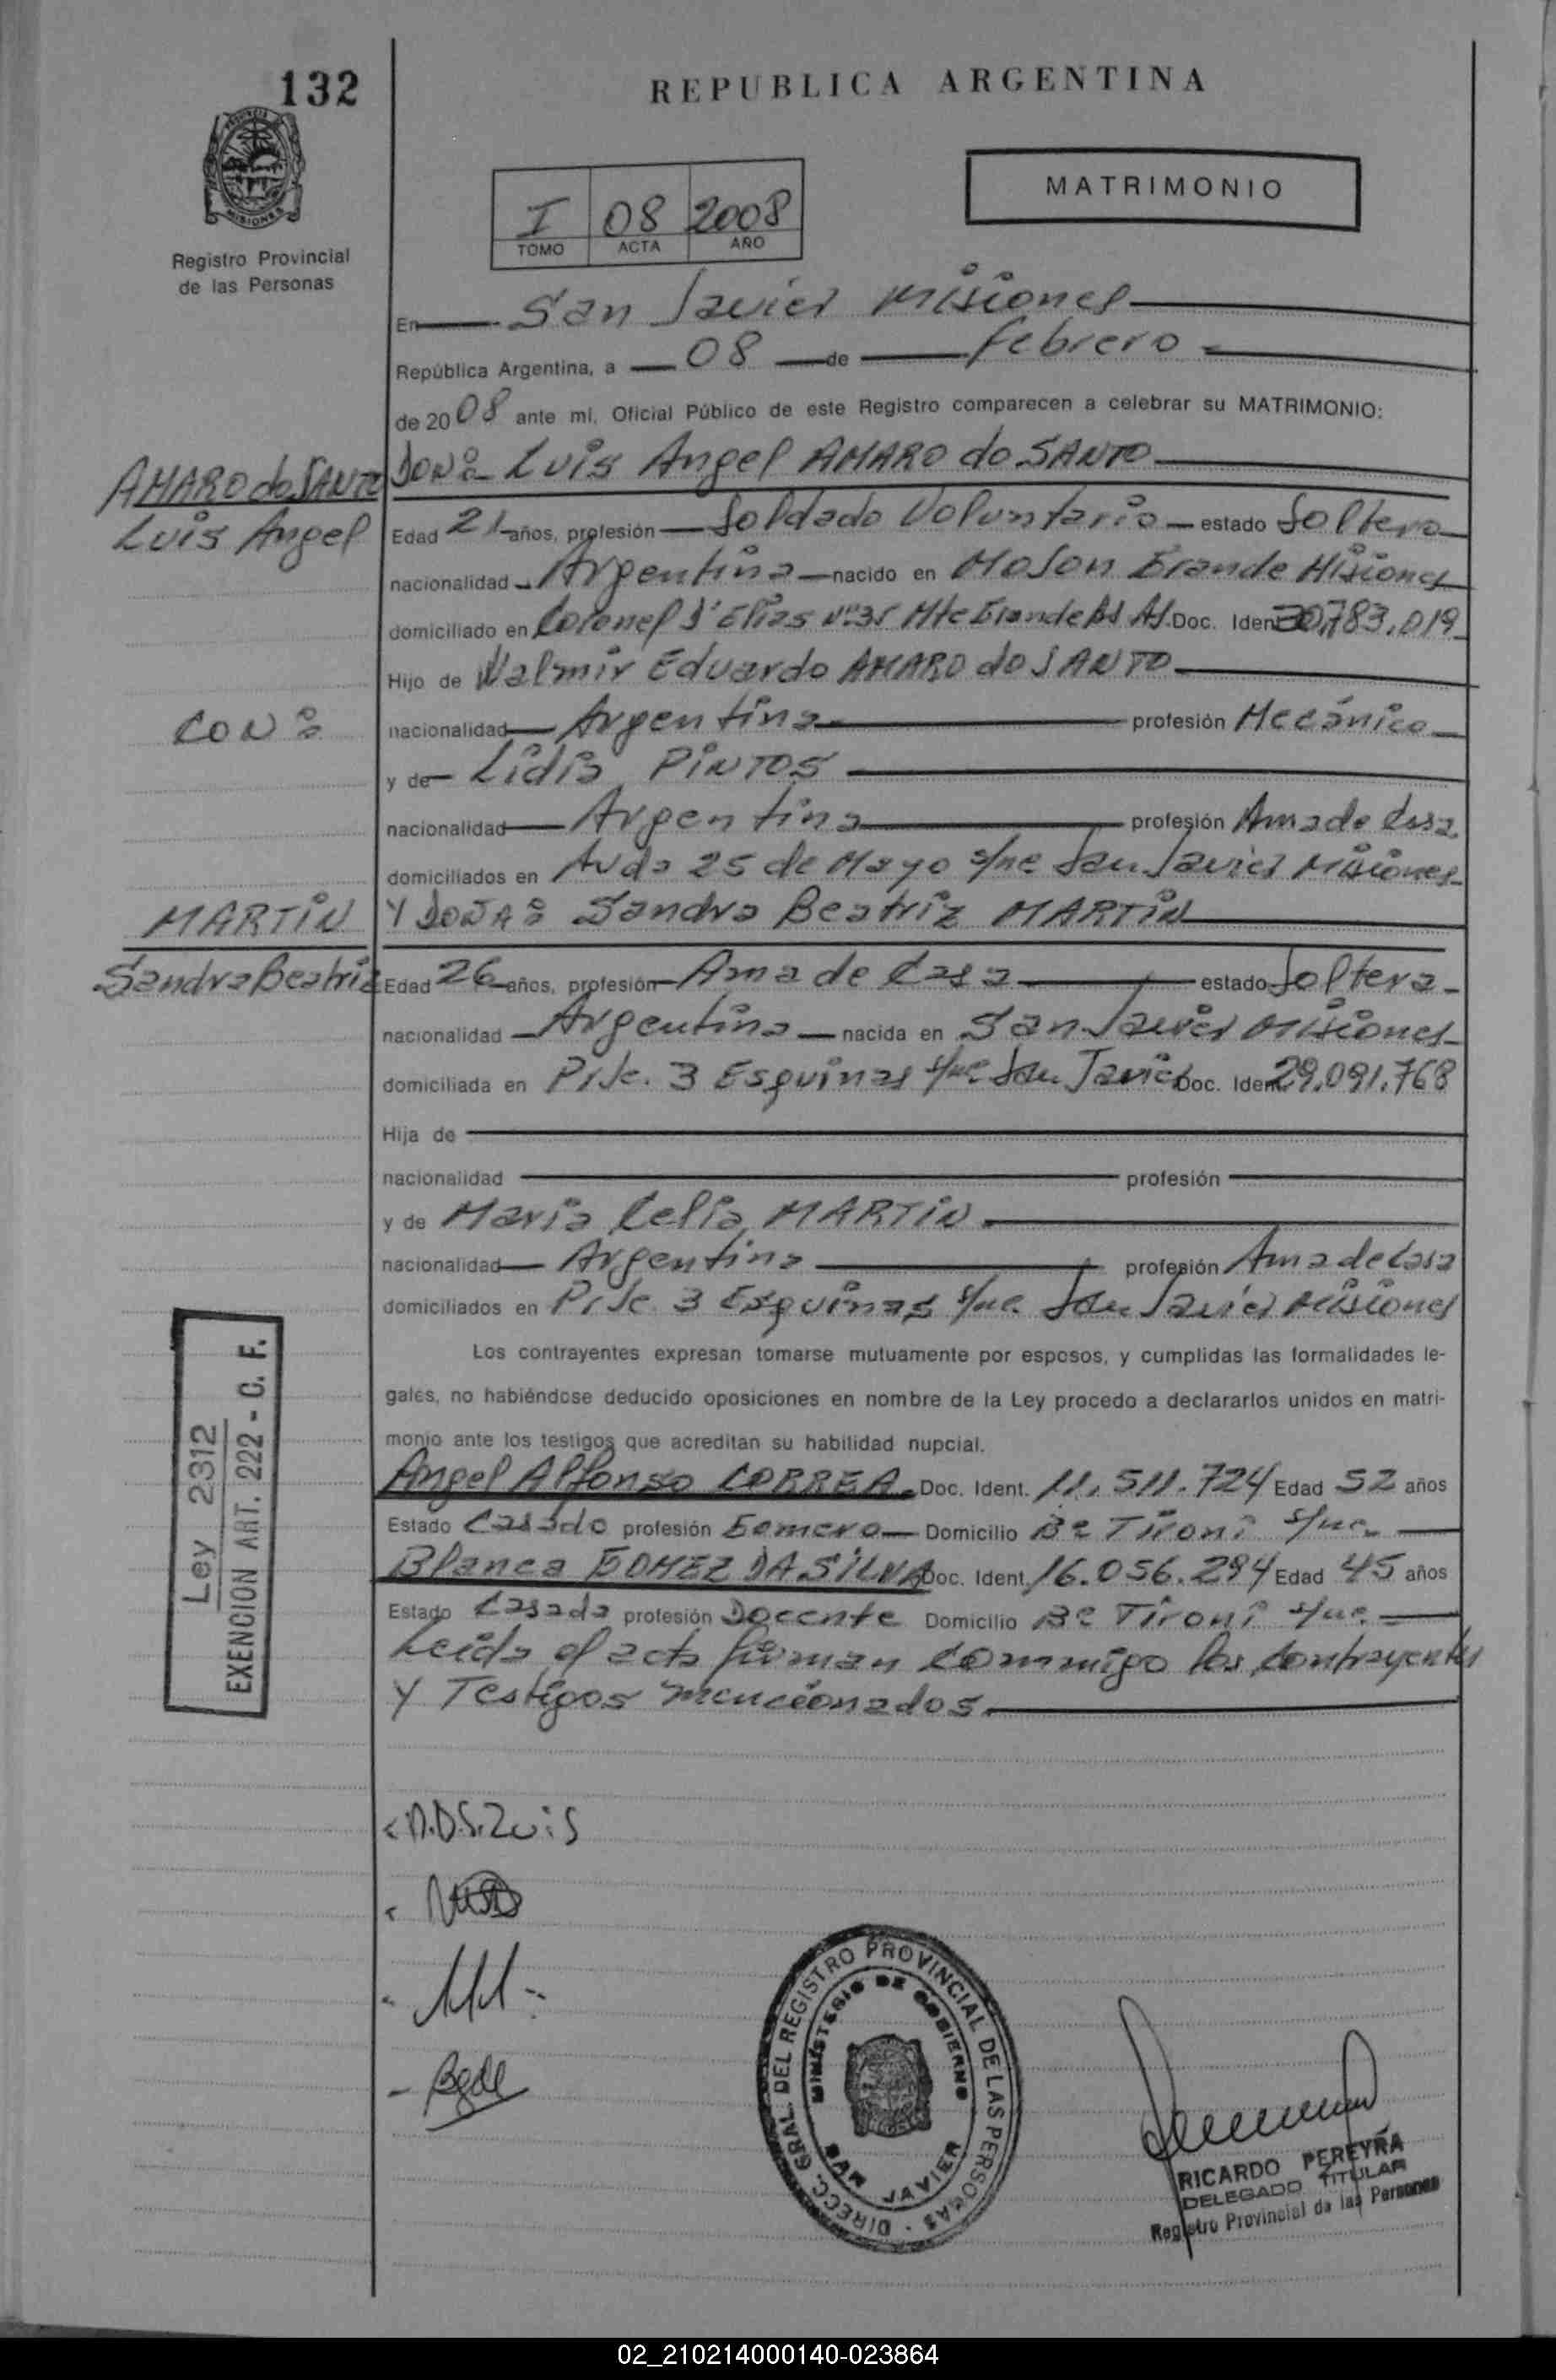 132
REPUBLICA ARGENTINA
PROVINCIA
MISIONES
Registro Provincial
de las Personas
I 08 2008
TOMO ACTA AÑO
MATRIMONIO
En San Javier Misiones
República Argentina, a 08 de febrero
de 2008 ante mí, Oficial Público de este Registro comparecen a celebrar su MATRIMONIO:
AMARO do SANTO
Luis Angel
DON: Luis Angel AMARO do SANTO
Edad 21 años, profesión Soldado Voluntario estado Soltero
nacionalidad Argentina nacido en Mojon Grande Misiones
domiciliado en Coronel D'Elias Nº 31 Mte Grande Bs As. Doc. Ident. 30.783.019
Hijo de Walmir Eduardo AMARO do SANTO
CON:
nacionalidad Argentina profesión Mecánico
y de Lidia PINTOS
nacionalidad Argentina profesión Ama de Casa
domiciliados en Avda 25 de Mayo s/ne San Javier Misiones
MARTIN
Sandra Beatriz
Y DOÑA: Sandra Beatriz MARTIN
Edad 26 años, profesión Ama de Casa estado Soltera
nacionalidad Argentina nacida en San Javier Misiones
domiciliada en Pje. 3 Esquinas s/ne San Javier Doc. Ident. 29.091.768
Hija de
nacionalidad profesión
y de Maria Celia MARTIN
nacionalidad Argentina profesión Ama de Casa
domiciliados en Pje. 3 Esquinas s/ne. San Javier Misiones
Los contrayentes expresan tomarse mutuamente por esposos, y cumplidas las formalidades le-
gales, no habiéndose deducido oposiciones en nombre de la Ley procedo a declararlos unidos en matri-
monio ante los testigos que acreditan su habilidad nupcial.
Angel Alfonso CORREA Doc. Ident. 11.511.724 Edad 52 años
Estado Casado profesión Gomero Domicilio Bº Tironi s/ne.
Blanca GOMEZ DA SILVA Doc. Ident. 16.056.294 Edad 45 años
Estado Casada profesión Docente Domicilio Bº Tironi s/ne.
Leida el acta firman commigo los contrayentes
Y Testigos mencionados.
Ley 2312
EXENCION ART. 222 - C. F.
A.D.S. Luis
DIRECC. GRAL. DEL REGISTRO PROVINCIAL DE LAS PERSONAS
MINISTERIO DE GOBIERNO
SAN JAVIER
RICARDO PEREYRA
DELEGADO TITULAR
Registro Provincial de las Personas
02_210214000140-023864